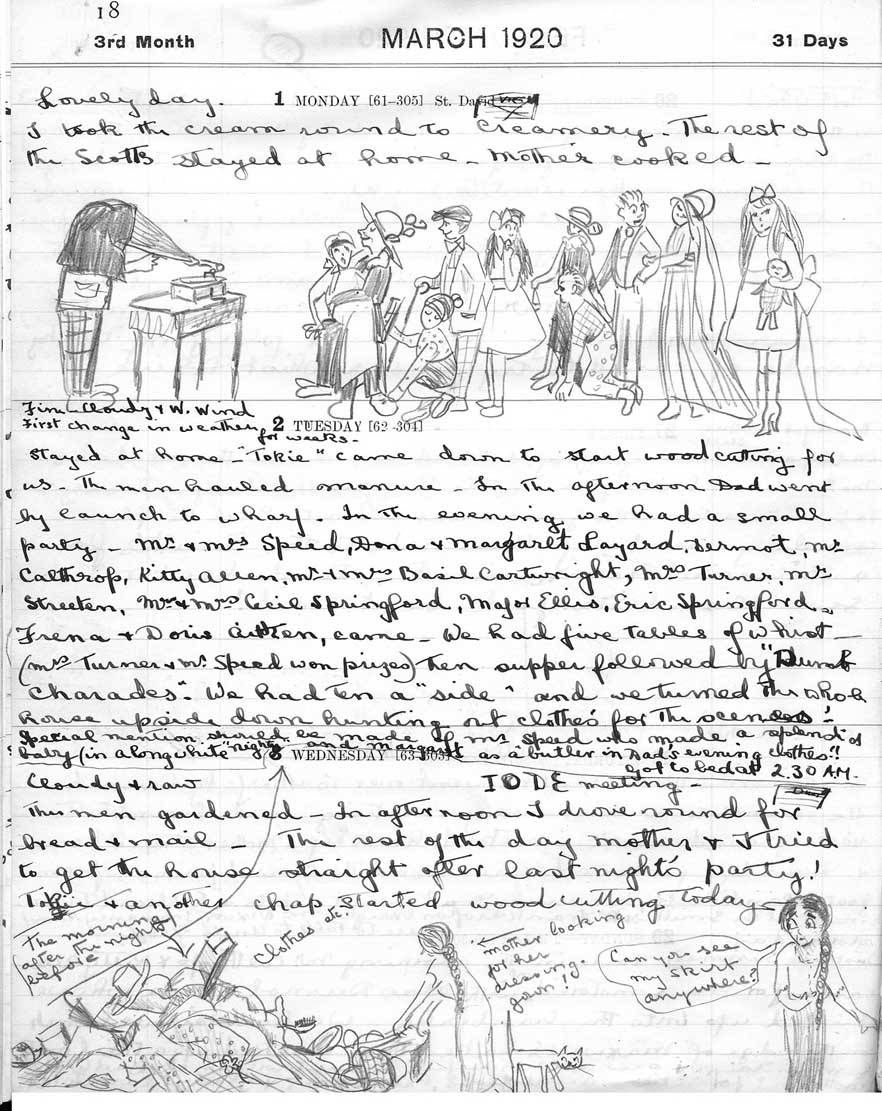 18
3rd Month MARCH 1920 31 Days
Lovely day. 1 MONDAY [61-305] St. David
I took the cream round to Creamery. The rest of
the Scotts stayed at home - Mother cooked -
Fine - Cloudy & W. Wind
First change in weather 2 TUESDAY [62-304]
for weeks -
Stayed at home - "Tokie" came down to start wood cutting for
us. The men hauled manure - In the afternoon Dad went
by launch to wharf. In the evening we had a small
party - Mr & Mrs Speed, Dona & Margaret Layard, Dermot, Mr
Calthrop, Kitty Allen, Mr & Mrs Basil Cartwright, Mrs Turner, Mr
Streeten, Mr & Mrs Cecil Springford, Major Ellis, Eric Springford,
Frena & Doris Aitken, came - We had five tables of whist -
(Mrs Turner & Mr Speed won prizes) then supper followed by "Dumb
Charades". We had ten a "side" and we turned the whole
house upside down hunting out clothes for the scenes!
Special mention should be made of Mr Speed who made a splendid
baby (in a long white nighty) and Margaret as a butler in Dad's evening clothes!!
3 WEDNESDAY [63-303] Got to bed at 2.30 A.M.
Cloudy & raw IODE meeting -
The men gardened - In afternoon I drove round for
bread & mail - The rest of the day mother & I tried
to get the house straight after last night's party!
Tokie & another chap started wood cutting today -
The morning
after the night
before
Clothes etc.
mother looking
for her
dressing
gown!
Can you see
my skirt
anywhere?